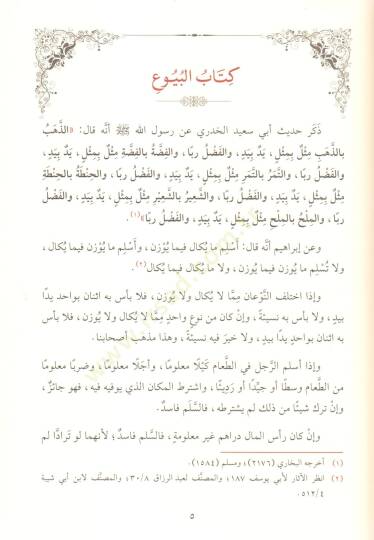 كِتَابُ البُيُوعِ
ذَكَر حديث أبي سعيد الخدري عن رسول الله ﷺ أنَّه قال: «الذَّهَبُ
بالذَّهَبِ مِثْلٌ بِمِثْلٍ، يَدٌ بِيَدٍ، والفَضْلُ ربًا، والفِضَّةُ بالفِضَّةِ مِثْلٌ بِمِثْلٍ، يَدٌ بِيَدٍ،
والفَضْلُ ربًا، والتَّمرُ بالتَّمرِ مِثْلٌ بِمِثْلٍ، يَدٌ بِيَدٍ، والفَضْلُ ربًا، والحِنْطَةُ بالحِنْطَةِ
مِثْلٌ بِمِثْلٍ، يَدٌ بِيَدٍ، والفَضْلُ ربًا، والشَّعيرُ بالشَّعيْرِ مِثْلٌ بِمِثْلٍ، يَدٌ بِيَدٍ، والفَضْلُ
ربًا، والمِلْحُ بالمِلْحِ مِثْلٌ بِمِثْلٍ، يَدٌ بِيَدٍ، والفَضْلُ ربًا»(١).
وعن إبراهيم أنَّه قال: أَسْلِم ما يُكال فيما يُوزن، وأَسْلِم ما يُوزن فيما يُكال،
ولا تُسْلِم ما يُوزن فيما يُوزن، ولا ما يُكال فيما يُكال(٢).
وإذا اختلف النَّوْعان مِمَّا لا يُكال ولا يُوْزن، فلا بأس به اثنان بواحد يدًا
بيدٍ، ولا بأس به نسيئةً، وإنْ كان من نوعٍ واحدٍ مِمَّا لا يُكال ولا يُوْزن، فلا بأس
به اثنان بواحدٍ يدًا بيدٍ، ولا خيرَ فيه نسيئةً، وهذا مذهب أصحابنا.
وإذا أسلم الرَّجل في الطَّعام كَيْلًا معلومًا، وأجَلًا معلومًا، وضربًا معلومًا
من الطَّعام وسطًا أو جيِّدًا أو رَدِيئًا، واشترط المكان الذي يوفيه فيه، فهو جائزٌ،
وإنْ ترك شيئًا من ذلك لم يشترطه، فالسَّلَم فاسدٌ.
وإنْ كان رأس المال دراهم غير معلومةٍ، فالسَّلم فاسدٌ؛ لأنهما لو تَرَادَّا لم
(١) أخرجه البخاري (٢١٧٦)؛ ومسلم (١٥٨٤).
(٢) انظر الآثار لأبي يوسف ١٨٧؛ والمصنَّف لعبد الرزاق ٣٠/٨؛ والمصنَّف لابن أبي شيبة
٥١٢/٤.
٥